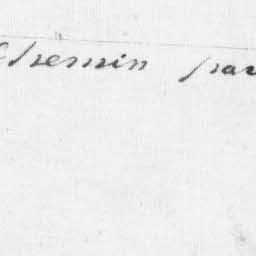 Chemin par